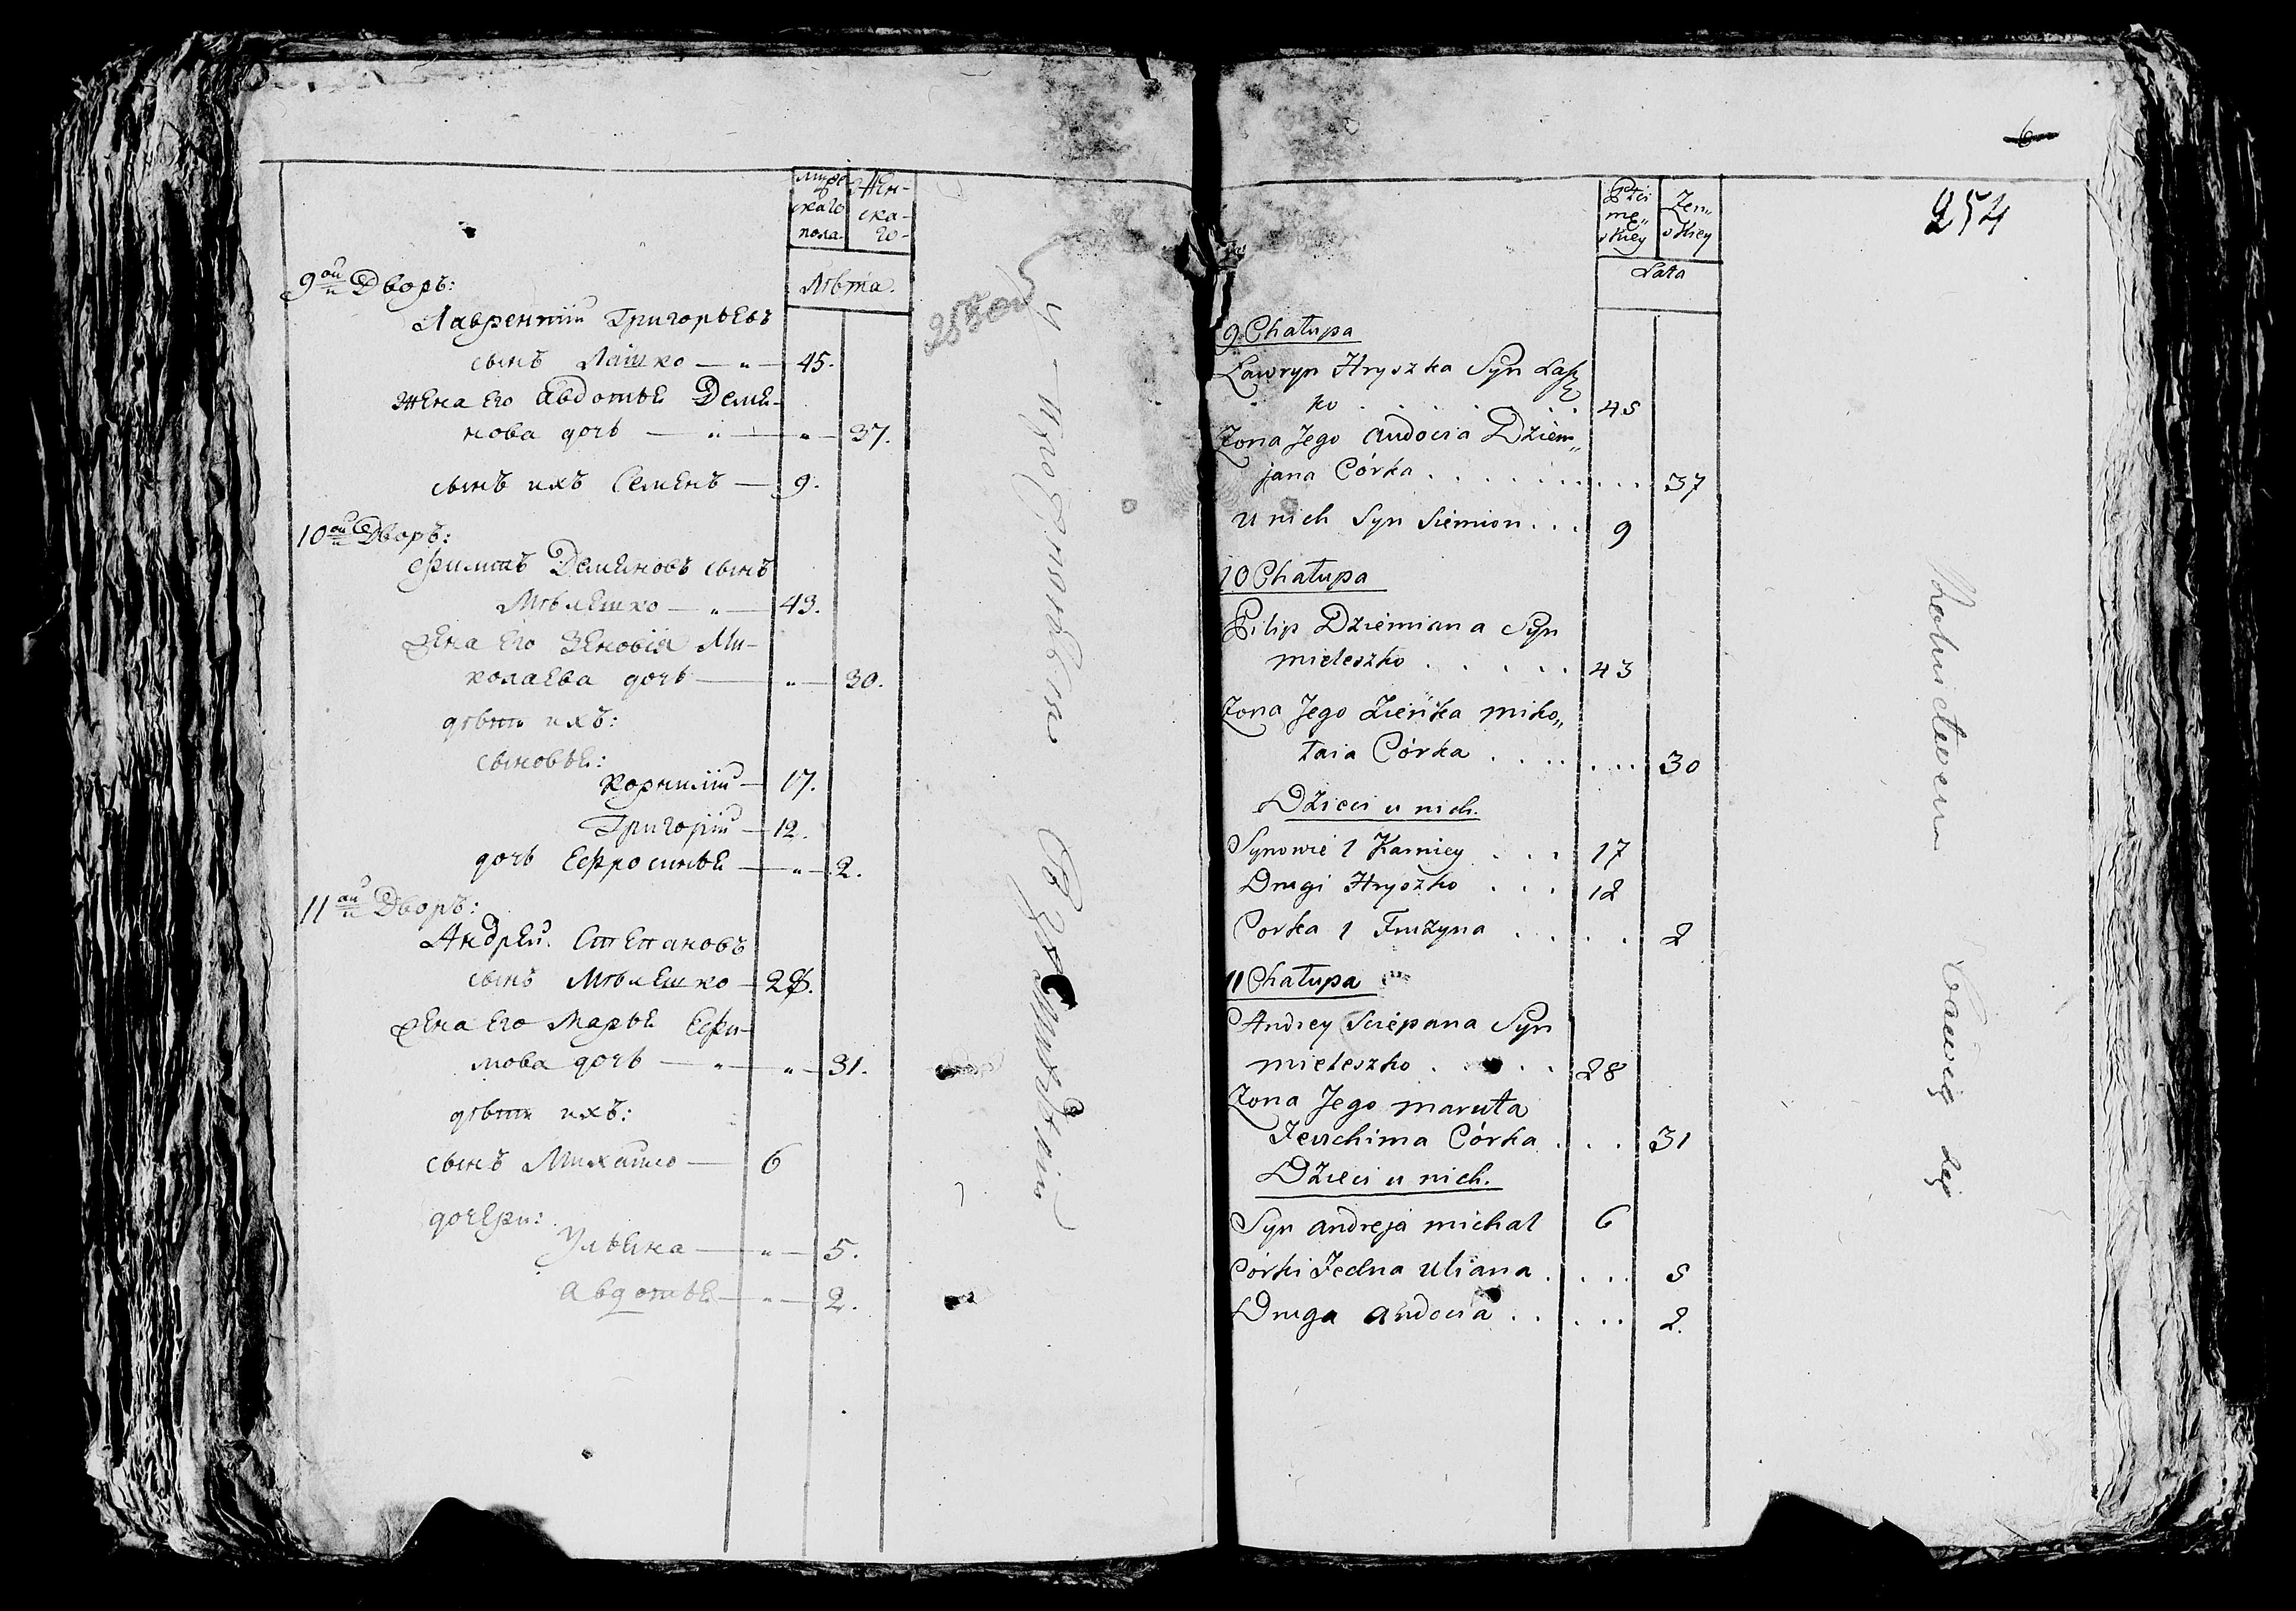 Муже
скаго
пола
Жен-
ска-
го-
Лѣта.
9ой Дворъ:
Лаврентій Григорьевъ
сынъ Лашко — „ — 45.
жена его Авдотья Демя-
нова дочь — „ — „ — 37.
сынъ ихъ Семенъ — 9.
10ой Дворъ:
Филипъ Демяновъ сынъ
Мѣлешко — „ — 43.
Жена его Зеновія Ми-
колаева дочь — „ — 30.
дѣти ихъ:
сыновья:
Корнилій — 17.
Григорій — 12.
дочь Ефросинья — „ — 2.
11ой Дворъ:
Андрей Степановъ
сынъ Мѣлешко — 28.
Жена его Марья Ефи-
мова дочь — „ — „ — 31.
дѣти ихъ:
сынъ Михайло — 6
дочери:
Ульяна — „ — 5.
Авдотья — „ — 2.
6
254
Płci
mę„
skiey
Żeń„
skiey
Lata
9 Chałupa
Ławryn Hryszka Syn Łasz
ko . . . . . . . 45
Żona Jego Audocia Dziem„
jana Córka . . . . . . . . . . 37
U nich Syn Siemion . . . 9
10 Chałupa
Filip Dziemiana Syn
mieleszko . . . . . 43
Żona Jego Zieńka miko„
łaia Córka . . . . . . . 30
Dzieci u nich.
Synowie 1 Karniey . . . 17
Drugi Hryszko . . . 12
Corka 1 Fruzyna . . . . 2
11 Chałupa
Andrey Sciepana Syn
mieleszko . . . . 28
Żona Jego maruta
Jeuchima Córka . . . 31
Dzieci u nich.
Syn andreja michał 6
Córki Jedna Uliana . . . . 5
Druga Audocia . . . . . 2.